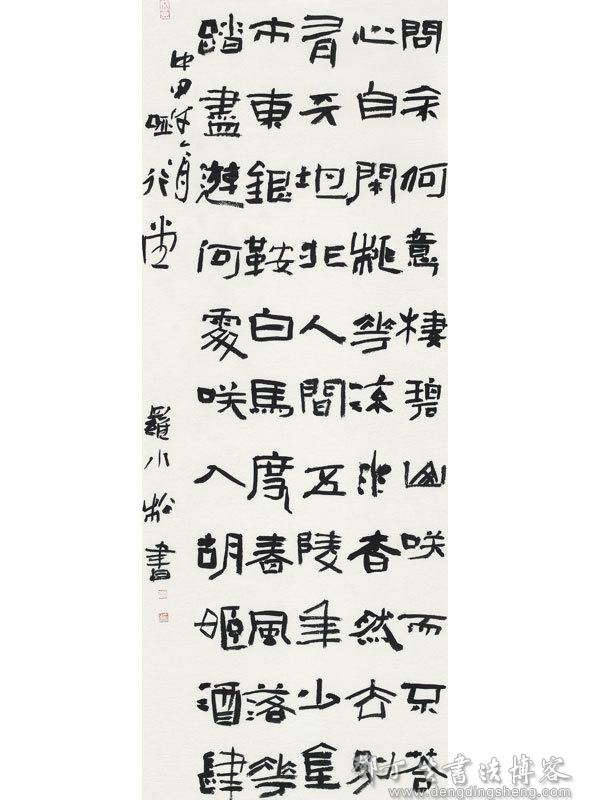 問余何意棲碧山咲而不答
心自閑桃花流水杳然去別
有天地非人間五陵年少金
市東銀鞍白馬度春風落花
踏盡遊何處咲入胡姬酒肆
堂
羅小松書
書法博客
www.dengdingsheng.com